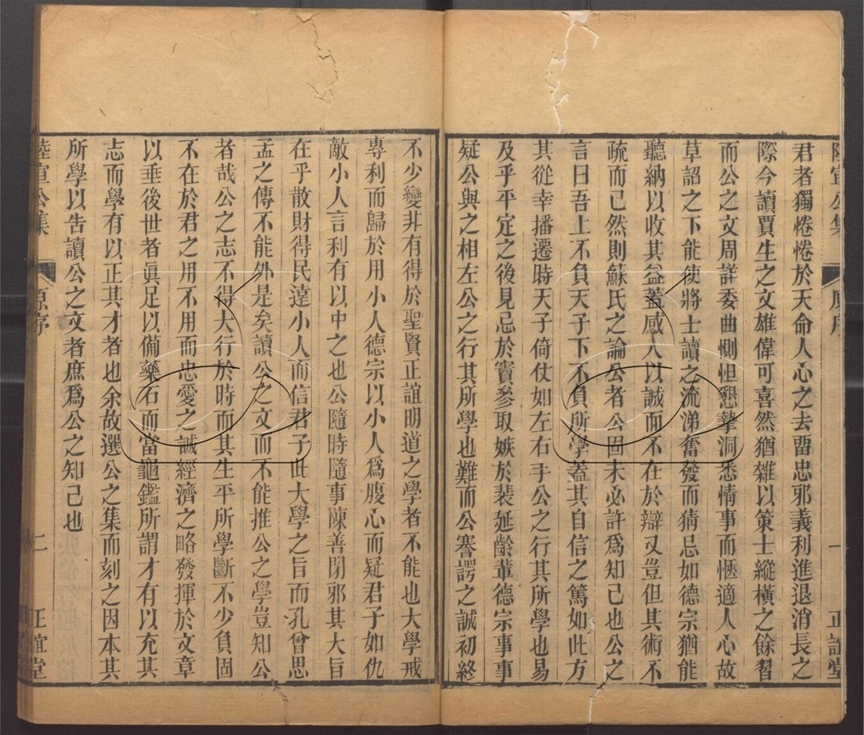 陸宣公集
原序
一
正誼堂
君者獨惓惓於天命人心之去畱忠邪義利進退消長之
際今讀賈生之文雄偉可喜然猶雜以策士縱橫之餘習
而公之文周詳委曲惻怛懇摯洞悉情事而愜適人心故
草詔之下能使將士讀之流涕奮發而猜忌如德宗猶能
聽納以收其益葢感人以誠而不在於辯又豈但其術不
疏而已然則蘇氏之論公者公固未必許爲知己也公之
言曰吾上不負天子下不負所學葢其自信之篤如此方
其從幸播遷時天子倚仗如左右手公之行其所學也易
及乎平定之後見忌於竇參取嫉於裴延齡輩德宗事事
疑公與之相左公之行其所學也難而公謇諤之誠初終
不少變非有得於聖賢正誼明道之學者不能也大學戒
專利而歸於用小人德宗以小人爲腹心而疑君子如仇
敵小人言利有以中之也公隨時隨事陳善閉邪其大旨
在乎散財得民遠小人而信君子此大學之旨而孔曾思
孟之傳不能外是矣讀公之文而不能推公之學豈知公
者哉公之志不得大行於時而其生平所學斷不少負固
不在於君之用不用而忠愛之誠經濟之略發揮於文章
以垂後世者眞足以備藥石而當龜鑑所謂才有以充其
志而學有以正其才者也余故選公之集而刻之因本其
所學以告讀公之文者庶爲公之知己也
陸宣公集
原序
二
正誼堂